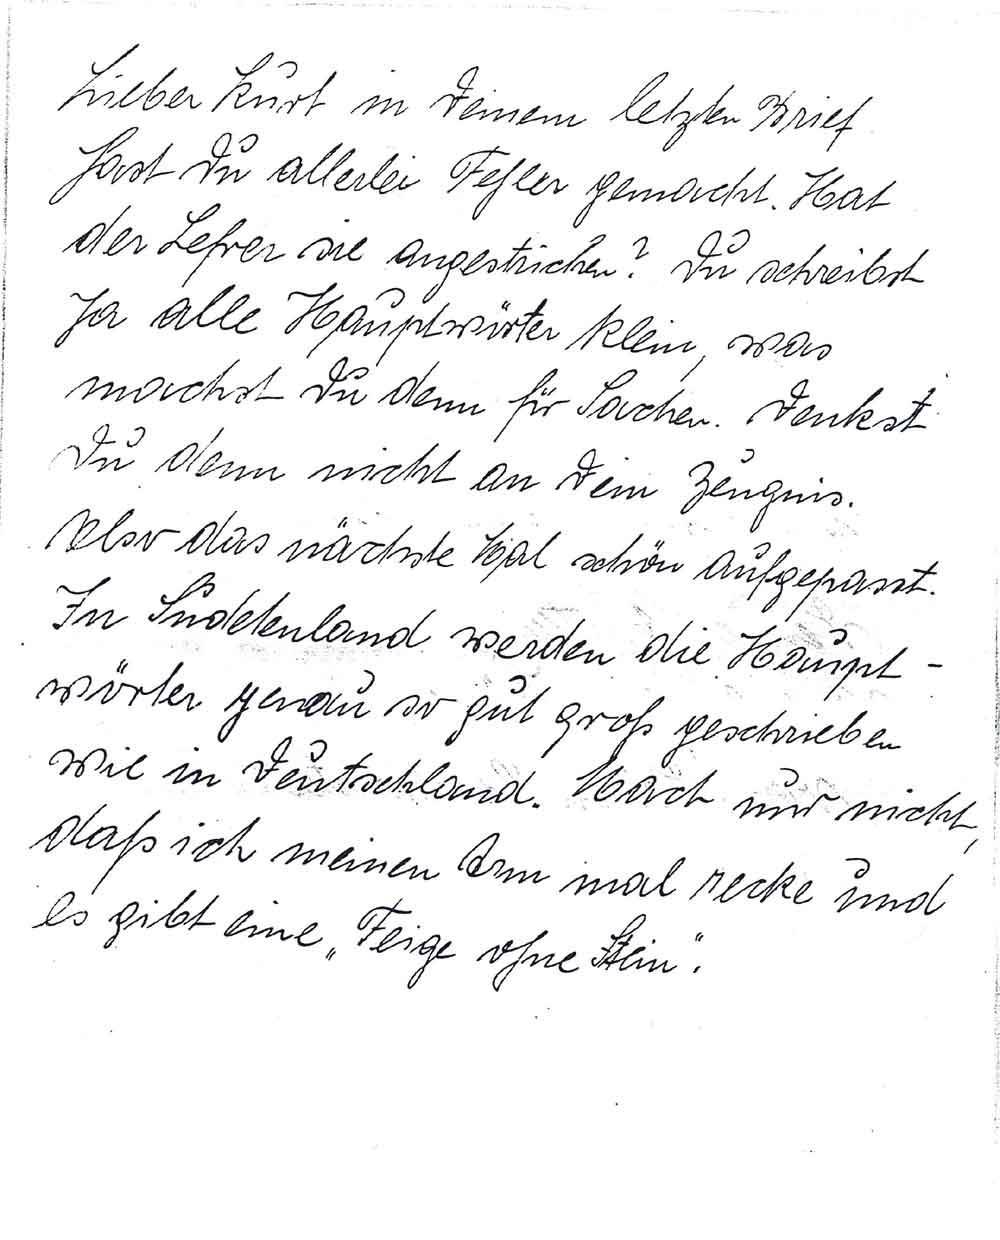 Lieber Kurt in Deinem letzten Brief
hast Du allerlei Fehler gemacht. Hat
der Lehrer sie angestrichen? Du schreibst
Ja alle Hauptwörter klein, was
machst Du denn für Sachen. Denkst
Du denn nicht an Dein Zeugnis.
Also das nächste Mal schön aufgepasst.
In Sudetenland werden die Haupt-
wörter genau so gut groß geschrieben
wie in Deutschland. Mach nur nicht,
daß ich meinen Arm mal recke und
es gibt eine „Feige ohne Stein".